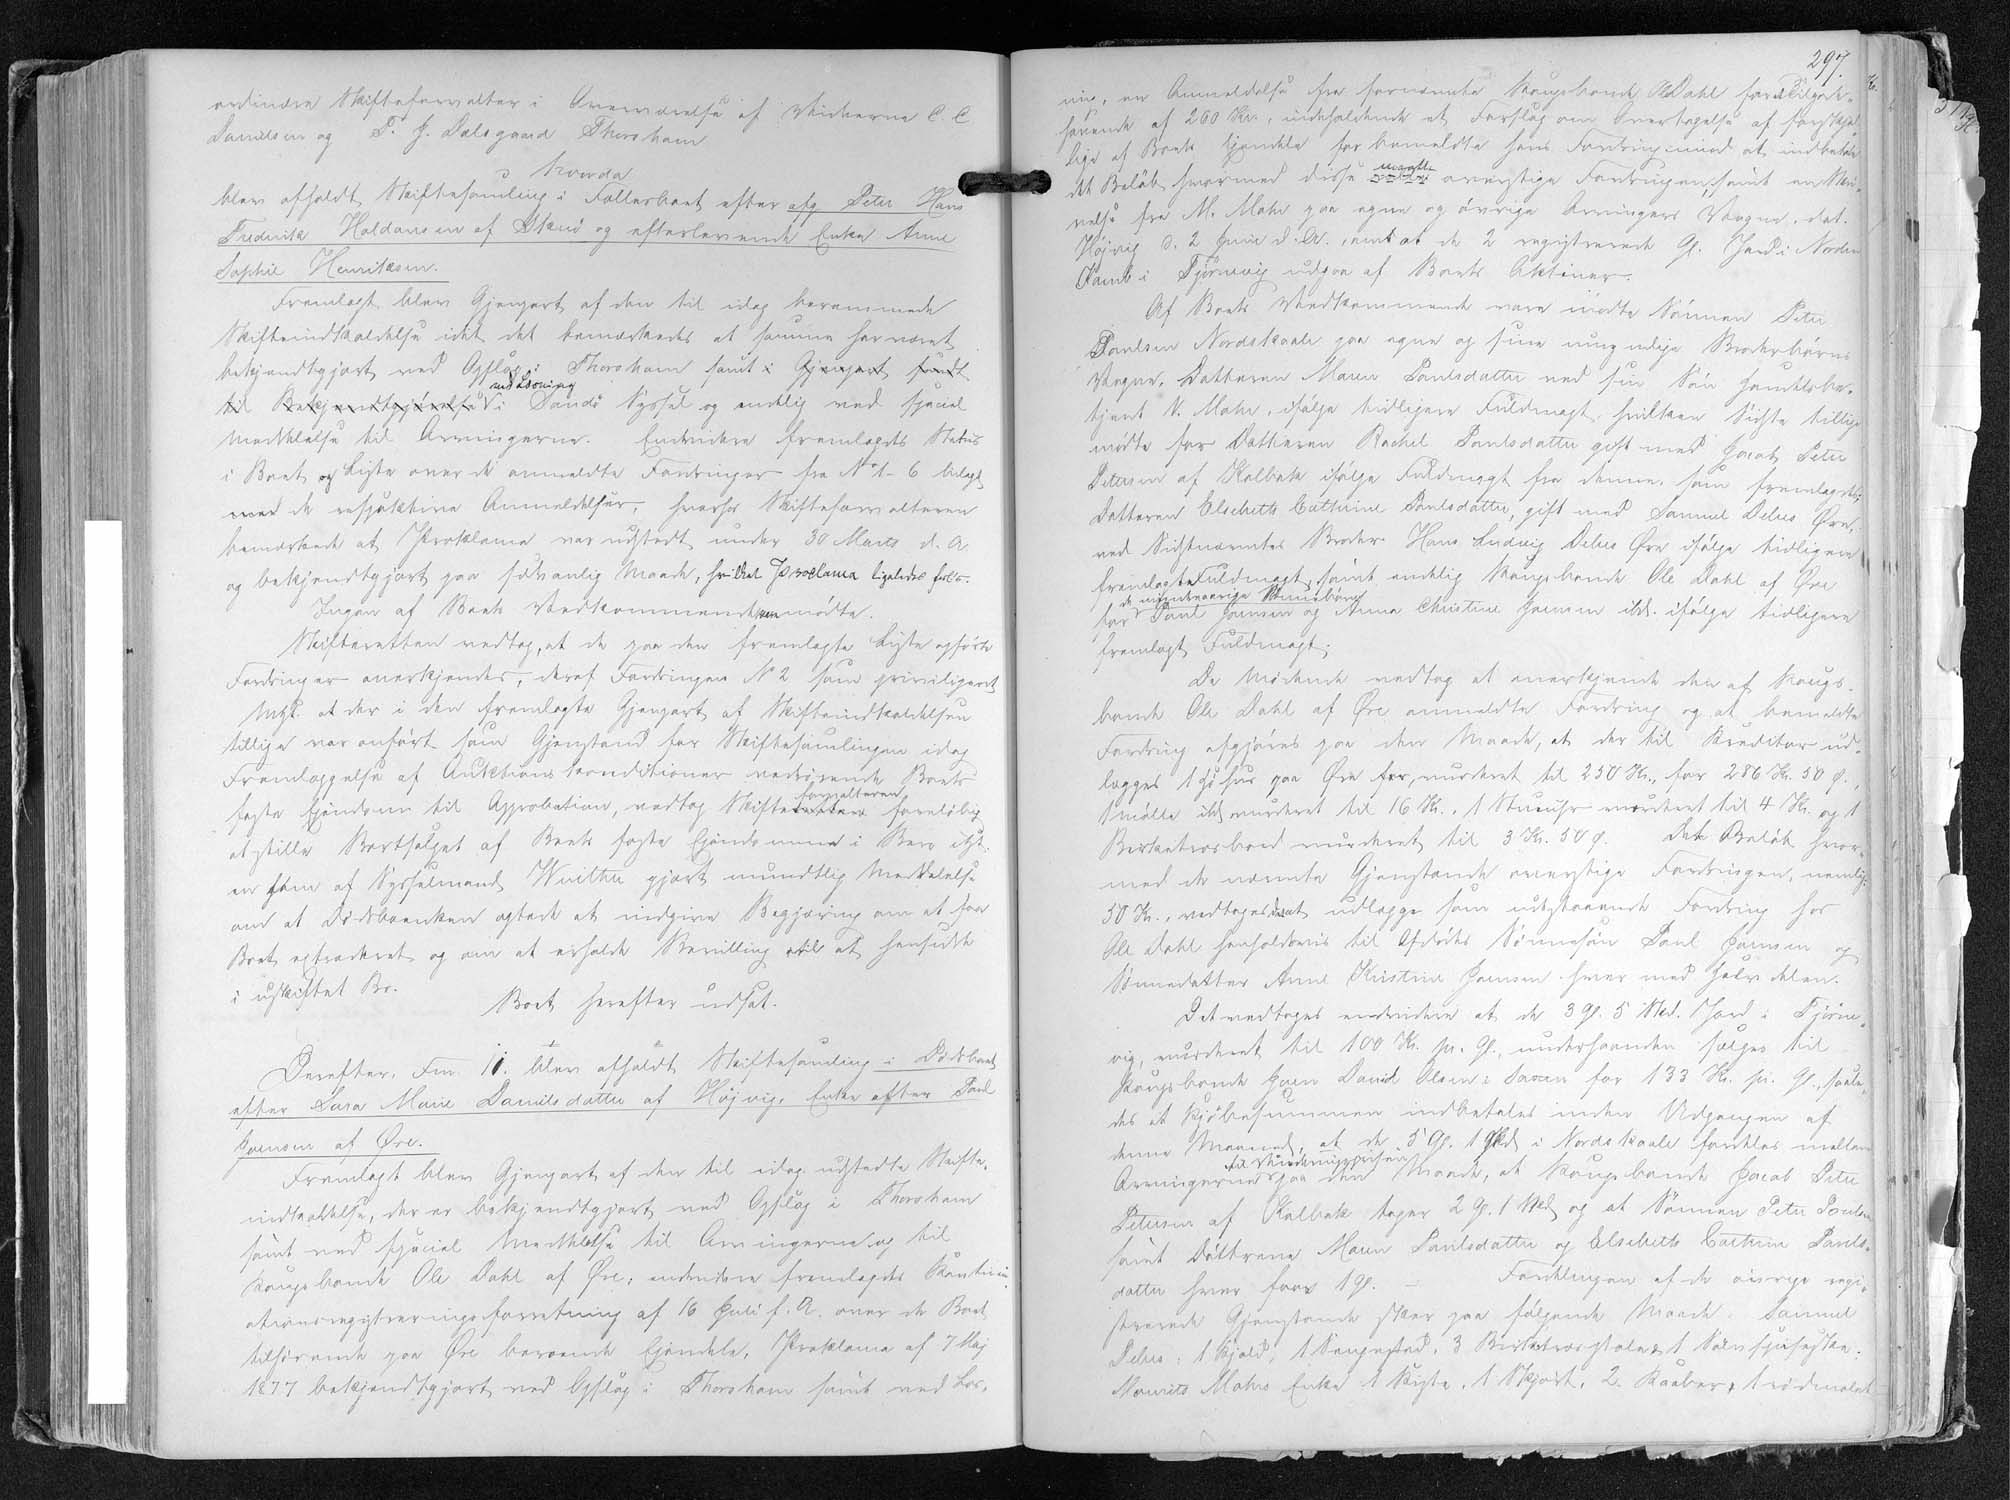 ordinære Skifteforvalter i Overværelse af Vidnerne C. C.
Danielsen og P. J. Dalsgaard Thorshavn
hvorda
blev afholdt Skiftesamling i Fællesboet efter afg. Peter Hans
Frederik Haldansen af Skuø og efterlevende Enke Anne
Sophie Henriksen.
Fremlagt blev Gjenpart af den til idag berammede
Skifteindkaldelse idet det bemærkedes at samme har været
bekjendtgjort ved Opslag i Thorshavn samt i Gjenpart sendt
til Bekjendtgjørelse ved Læsning i Sandø Syssel og endlig ved special
Meddelelse til Arvingerne. Endvidere fremlagdes Status
i Boet og Liste over de anmeldte Fordringer fra No 1-6 bilagt
med de respektive Anmeldelser, hvorhos Skifteforvalteren
bemærkede at Proklama var udstedt under 30 Marts d. A.
og bekjendtgjort paa sædvanlig Maade, hvilket Proclama ligeledes frl..
Ingen af Boets Vedkommende var mødte.
Skifteretten vedtog, at de paa den fremlagte Liste opførte
Fordringer anerkjendes, deraf Fordringen No 2 som priviligeret
Mht. at der i den fremlagte Gjenpart af Skifteindkaldelsen
tillige var anført som Gjenstand for Skiftesamlingen idag
Fremlæggelse af Auktionskonditioner vedrørende Boets
faste Ejendom til Approbation, vedtog Skifteforvalteren foreløbig
at stille Bortsalget af Boets faste Ejendomme i Bero idet
en har af Sysselmand Winther gjort mundtlig Meddelelse
om at Dødsboenken agtede at indgive Begjæring om at faa
Boet extraderet og om at erholde Bevilling til at hensidde
i uskiftet Bo.
Boet herefter udsat.
Derefter, Fm. 11. blev afholdt Skiftesamling i Dødsboet
efter Sara Marie Danielsdatter af Højvig, Enke efter Poul
Joensen af Øre.
Fremlagt blev Gjenpart af den til idag udstedte Skifte-
indkaldelse, der er bekjendtgjort ved Opslag i Thorshavn
samt ved special Meddelelse til Arvingerne og til
Kongsbonde Ole Dahl af Øre; endvidere fremlagdes Kontinu-
ationsregistreringsforretning af 16 Juli f. A. over de Boet
tilhørende paa Øre beroende Ejendele, Proklama af 7 Maj
1877 bekjendtgjort ved Opslag i Thorshavn samt ved Læs-
297
ning, en Anmeldelse fra fornævnte Kongsbonde O Dahl for Tilgode-
havende af 260 Kr., indeholdende et Forslag om Overtagelse af forskjel-
lige af Boets Ejendele for bemeldte hans Fordring mod at indbetale
det Beløb hvormed disse overstige Fordringen, samt en Skri-
velse fra M. Mohr paa egne og øvrige Arvingers Vegne, dat.
Højvig d. 2 Juni d. A., om at de 2 registrerede G. Jord i Norden
i Tjørnevig udgaa af Boets Aktiver.
Af Boets Vedkommende vare mødte Sønnen Peter
Poulsen Nordskaale paa egne og sine umyndige Broderbørns
Vegne, Datteren Maren Poulsdatter ved sin Søn Handelsbe-
tjent V. Mohr, ifølge tidligere Fuldmagt, hvilken Sidste tillige
mødte for Datteren Rachel Poulsdatter gift med Jacob Peter
Petersen af Kalbak ifølge Fuldmagt fra denne, som fremlagdes;
Datteren Elsebeth Cathrine Poulsdatter, gift med Samuel Debes Øre,
ved Sidstnævntes Broder Hans Ludvig Debes Øre ifølge tidligere
fremlagte Fuldmagt, samt endelig Kongsbonde Ole Dahl af Øre
for de mindreaarige Sønnebørn Poul Joensen og Anna Christine Joensen ibd. ifølge tidligere
fremlagt Fuldmagt.
De Mødende vedtog at anerkjende den af Kongs-
bonde Ole Dahl af Øre anmeldte Fordring og at bemeldte
Fordring afgjøres paa den Maade, at der til Kreditor ud-
lægges 1 Hus paa Øre, vurderet til 250 Kr., for 286 Kr. 50 Ø.,
1 Mølle ibd vurderet til 16 Kr., 1 Stueuhr vurderet til 4 Kr. og 1
Birketræsbord vurderet til 3 Kr. 50 Ø. Det Beløb hvor-
med de nævnte Gjenstande overstige Fordringen, nemlig:
50 Kr., vedtoges at udlægge som udestaaende Fordring hos
Ole Dahl henholdsvis til Afdødes Sønnesøn Poul Joensen og
Sønnedatter Anne Kristine Joensen hver med Halvdelen.
Det vedtoges endvidere at de 3 G. 5 Skd. Jord i Tjørne-
vig, vurderet til 100 Kr. pr. G., underhaanden sælges til
Kongsbonde Joen David Olsen i Saxen for 133 Kr. pr. G., saale-
des at Kjøbesummen indbetales inden Udgangen af
denne Maaned, at de 5 G. 1 Skd i Nordskaale fordeles mellem
Arvingerne til Vurderingsprisen paa den Maade, at Kongsbonde Jacob Peter
Petersen af Kalbak tager 2 G. 1 Skd og at Sønnen Peter Poulsen
samt Døttrene Maren Poulsdatter og Elsebeth Cathrine Pouls-
datter hver faar 1 G. — Fordelingen af de øvrige regi-
strerede Gjenstande sker paa følgende Maade. Samuel
Debes: 1 Kjedel, 1 Sengested, 3 Birketræsstole, 1 Sølv
Mourits Mohrs Enke 1 Kiste, 1 Skjort, 2 Kaaber, 1 rødmalet